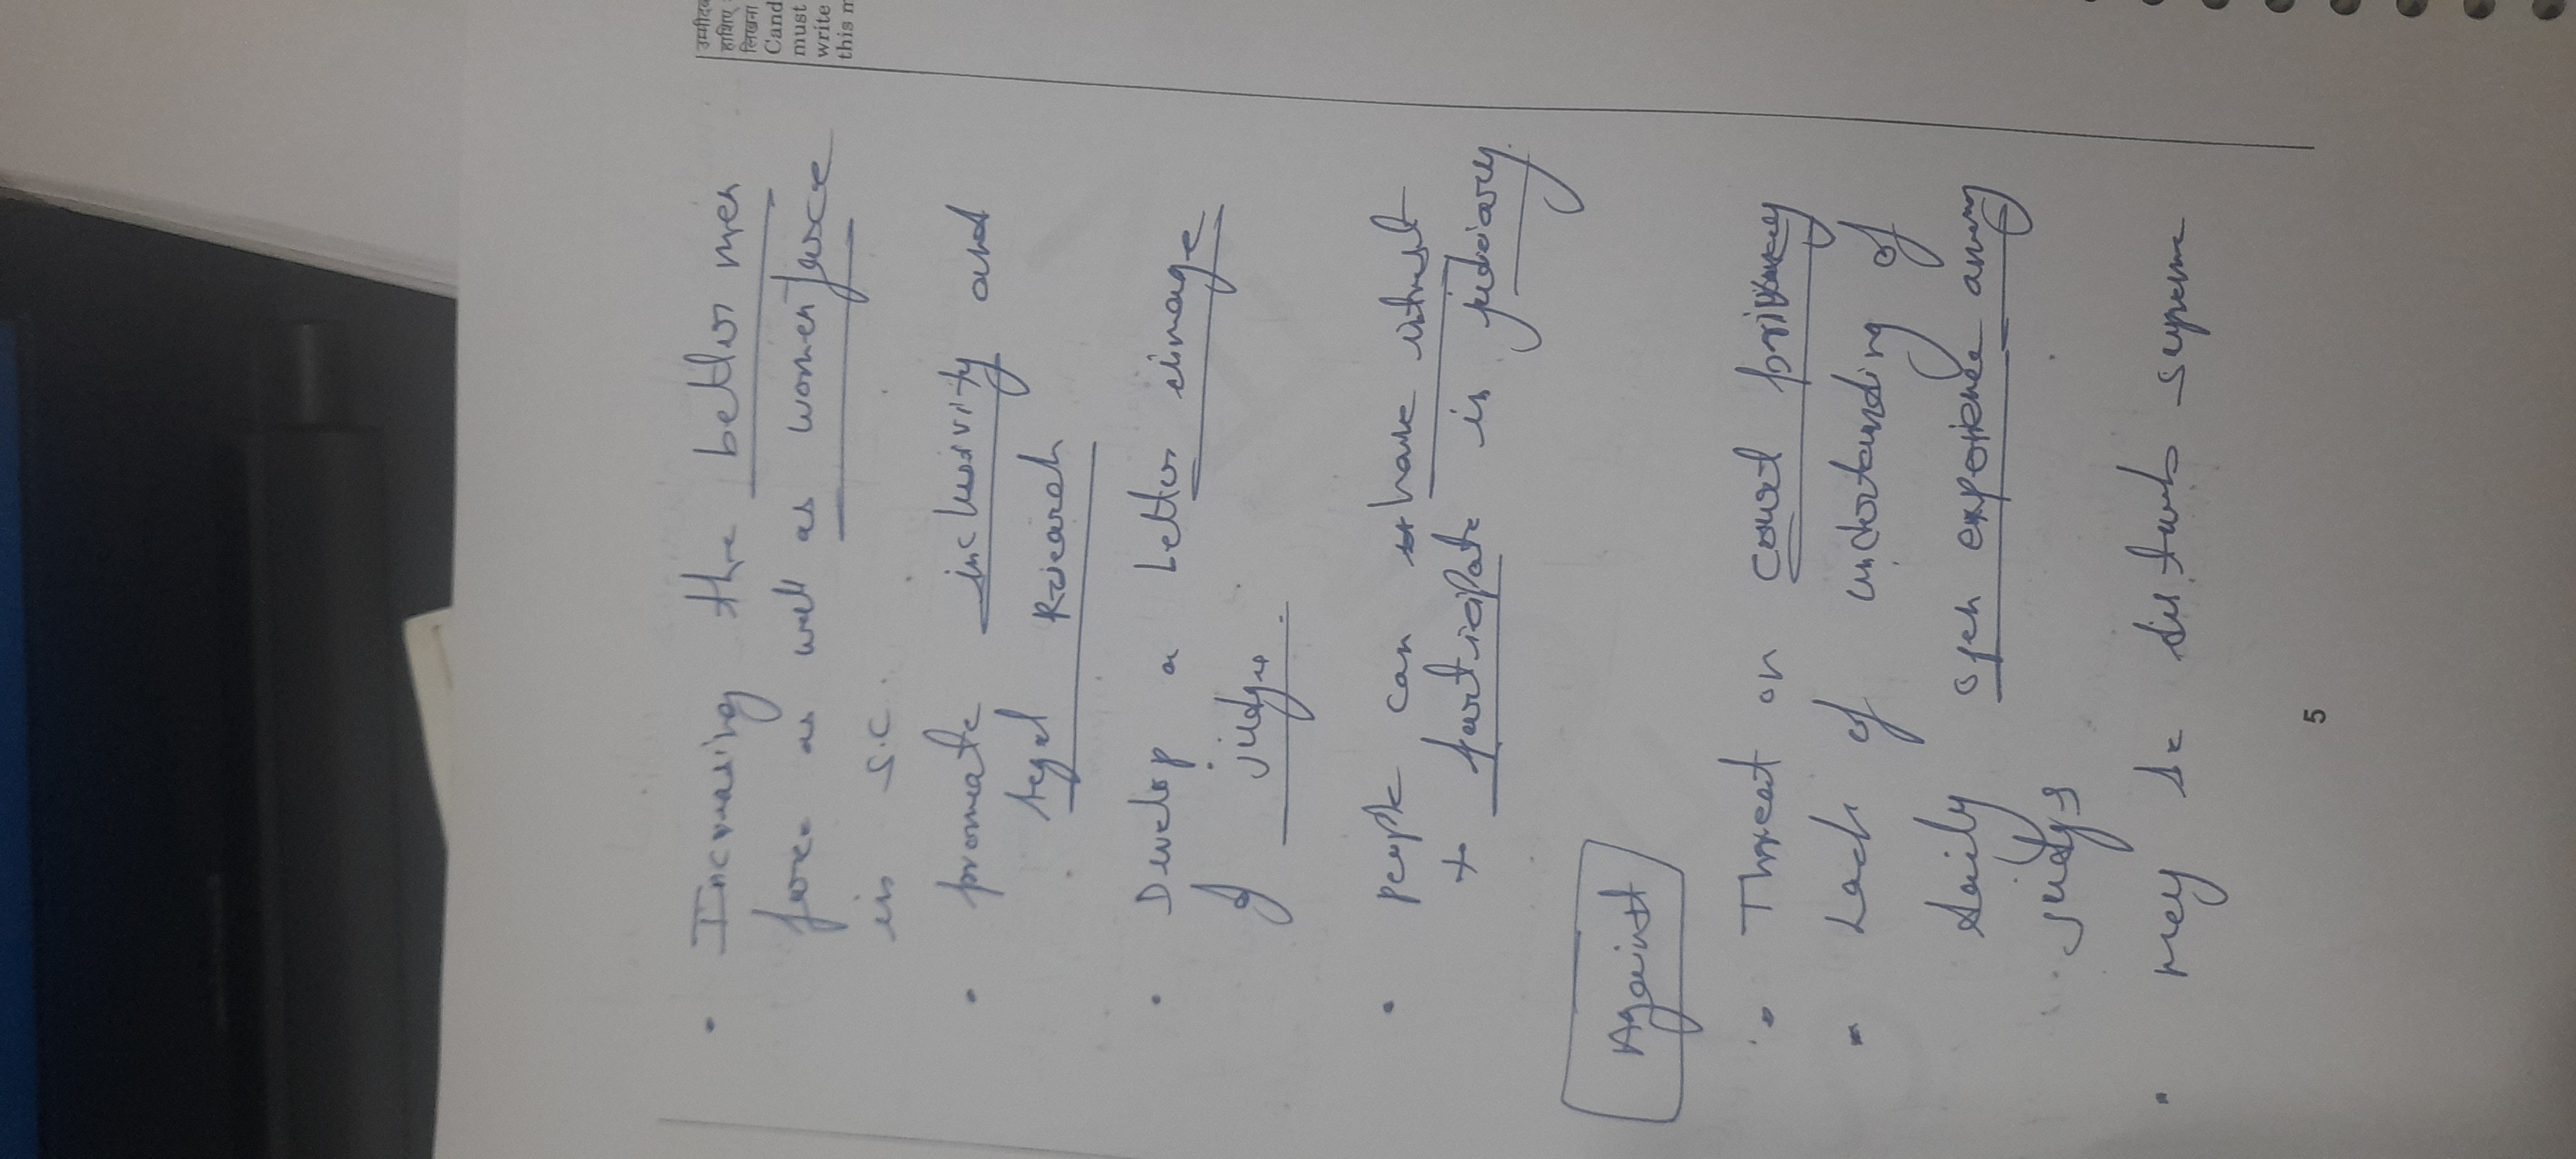 उम्मीदव
हाशिए
लिखना
Cand
must
write
this m
• Increasing the better men
force as well as women force
in S.C
• promote inclusivity and
legal Research
• Develop a better image
of judge.
• people can have intrest
+ participate in judiciary.
Against
• Threat on court
• Lack of understanding of
daily open experience among
judges
• may be disturb supreme
5